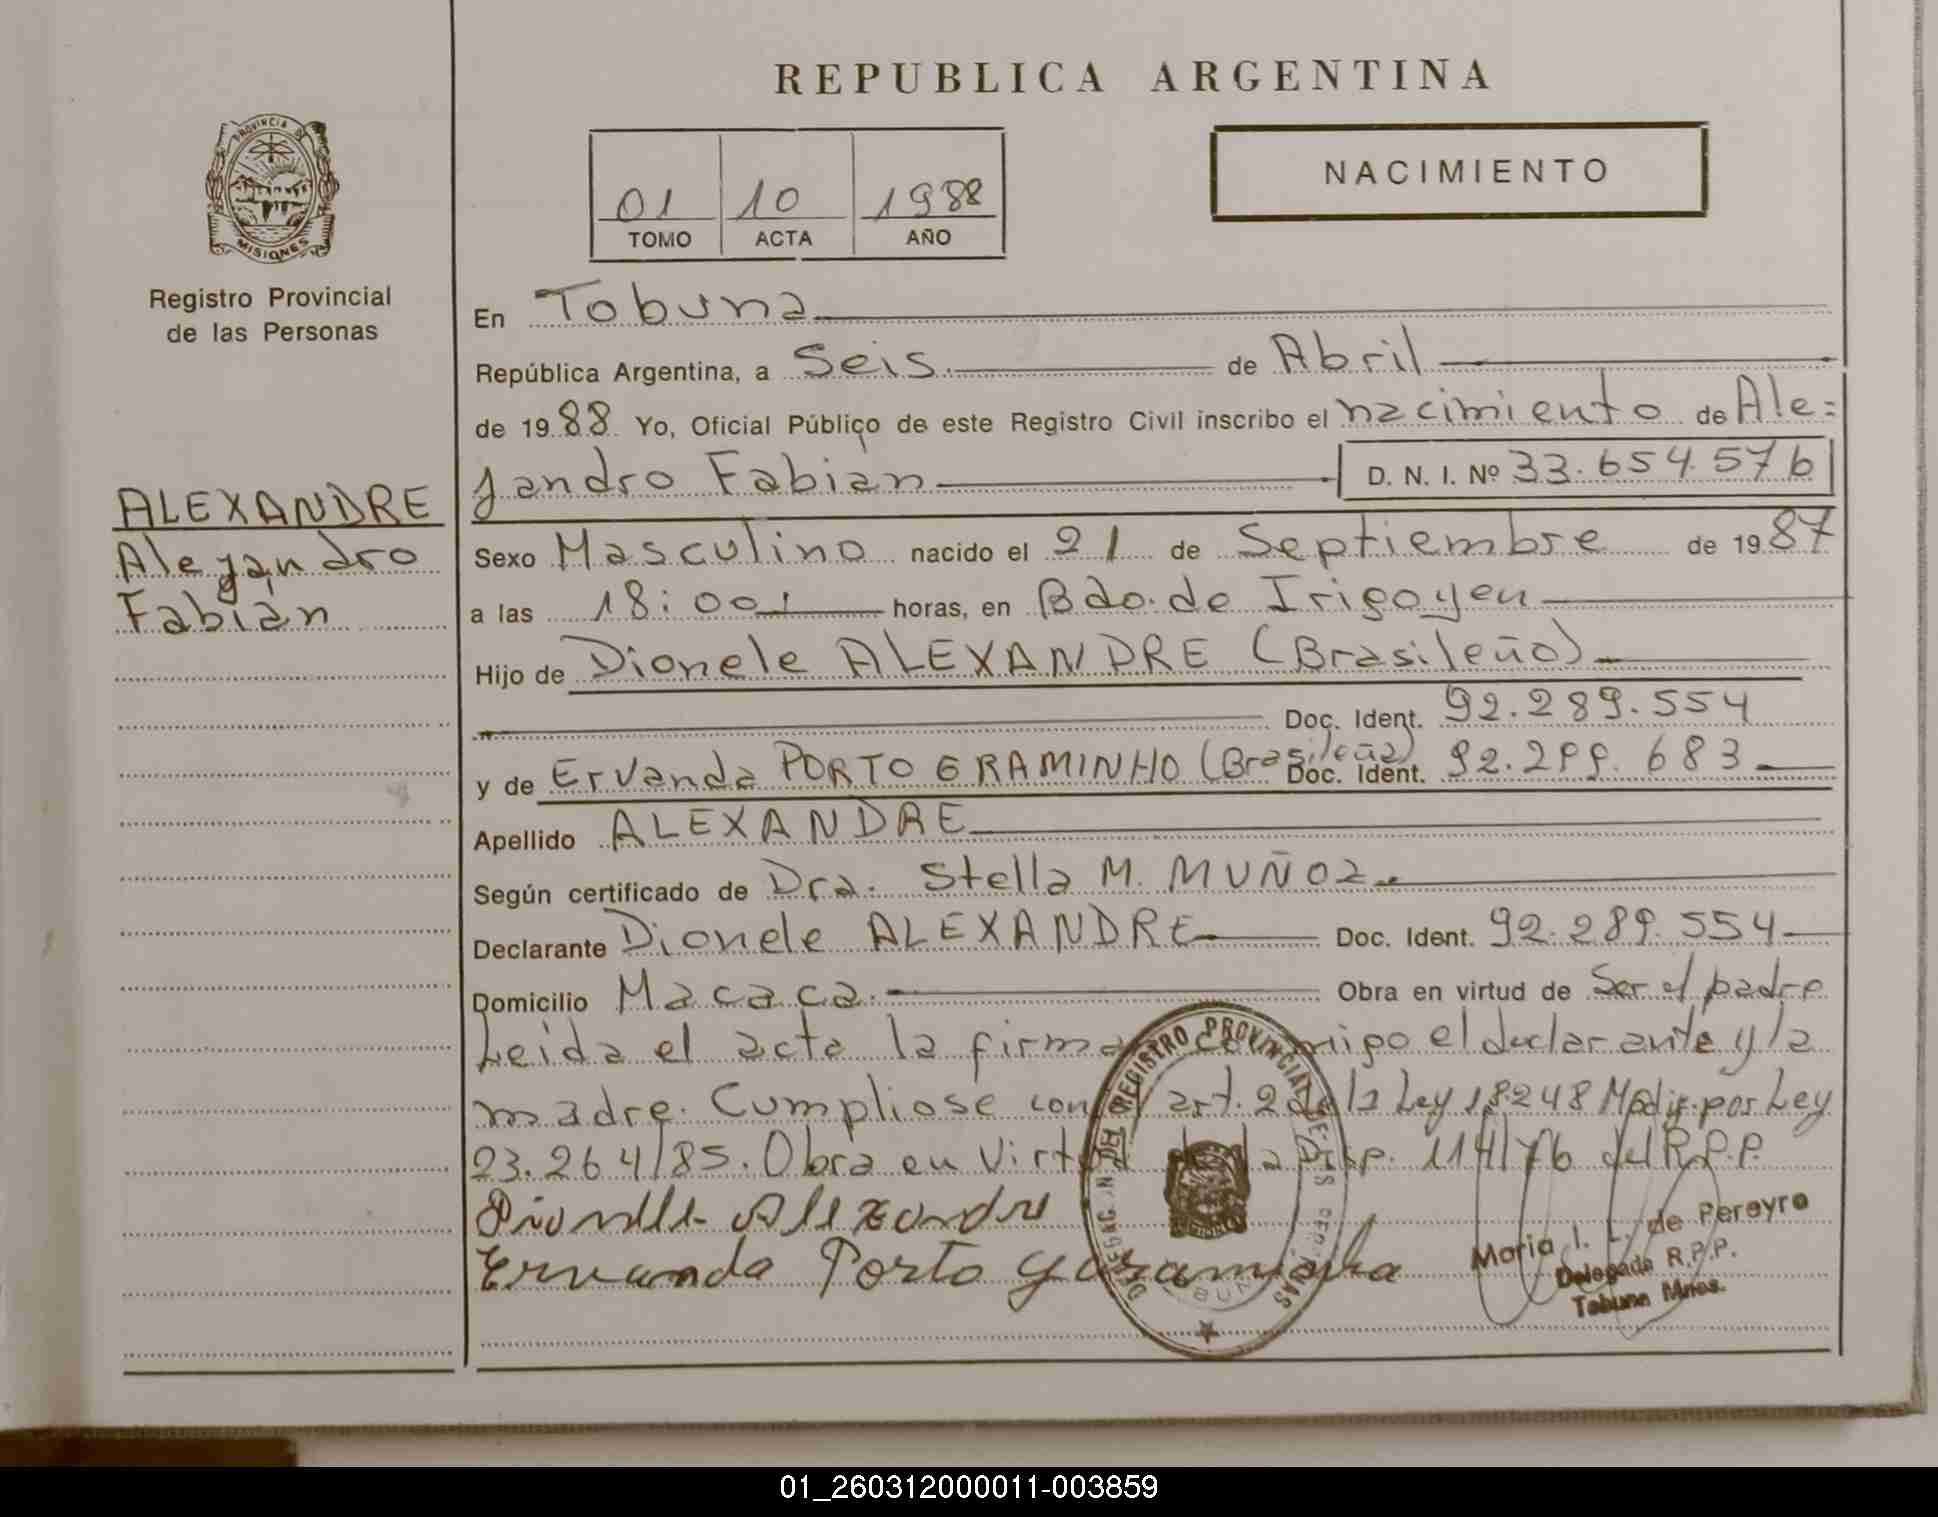 REPUBLICA ARGENTINA
PROVINCIA DE
MISIONES
Registro Provincial
de las Personas
01 10 1988
TOMO ACTA AÑO
NACIMIENTO
ALEXANDRE
Alejandro
Fabián
En Tobuna
República Argentina, a Seis de Abril
de 1988 Yo, Oficial Público de este Registro Civil inscribo el nacimiento de Ale=
jandro Fabian D. N. I. Nº 33.654.576
Sexo Masculino nacido el 21 de Septiembre de 1987
a las 18:00 horas, en Bdo. de Irigoyen
Hijo de Dionele ALEXANDRE (Brasileño)
Doc. Ident. 92.289.554
y de Ervanda PORTO GRAMINHO (Brasileña) Doc. Ident. 92.299.683
Apellido ALEXANDRE
Según certificado de Dra. Stella M. MUÑOZ
Declarante Dionele ALEXANDRE Doc. Ident. 92.289.554
Domicilio Macaca Obra en virtud de Ser el padre
Leida el acta la firma conmigo el declarante y la
madre. Cumpliose con el art. 2 de la Ley 18.248 Modif. por Ley
23.264/85. Obra en Virtud de la Disp. 114/76 del R.P.P.
Dionelle Alexandre
Ervanda Porto Garaminha
DEL REGISTRO PROVINCIAL DE LAS PERSONAS
Maria I. L. de Pereyro
Delegada R.P.P.
Tobuna Mnes.
01_260312000011-003859